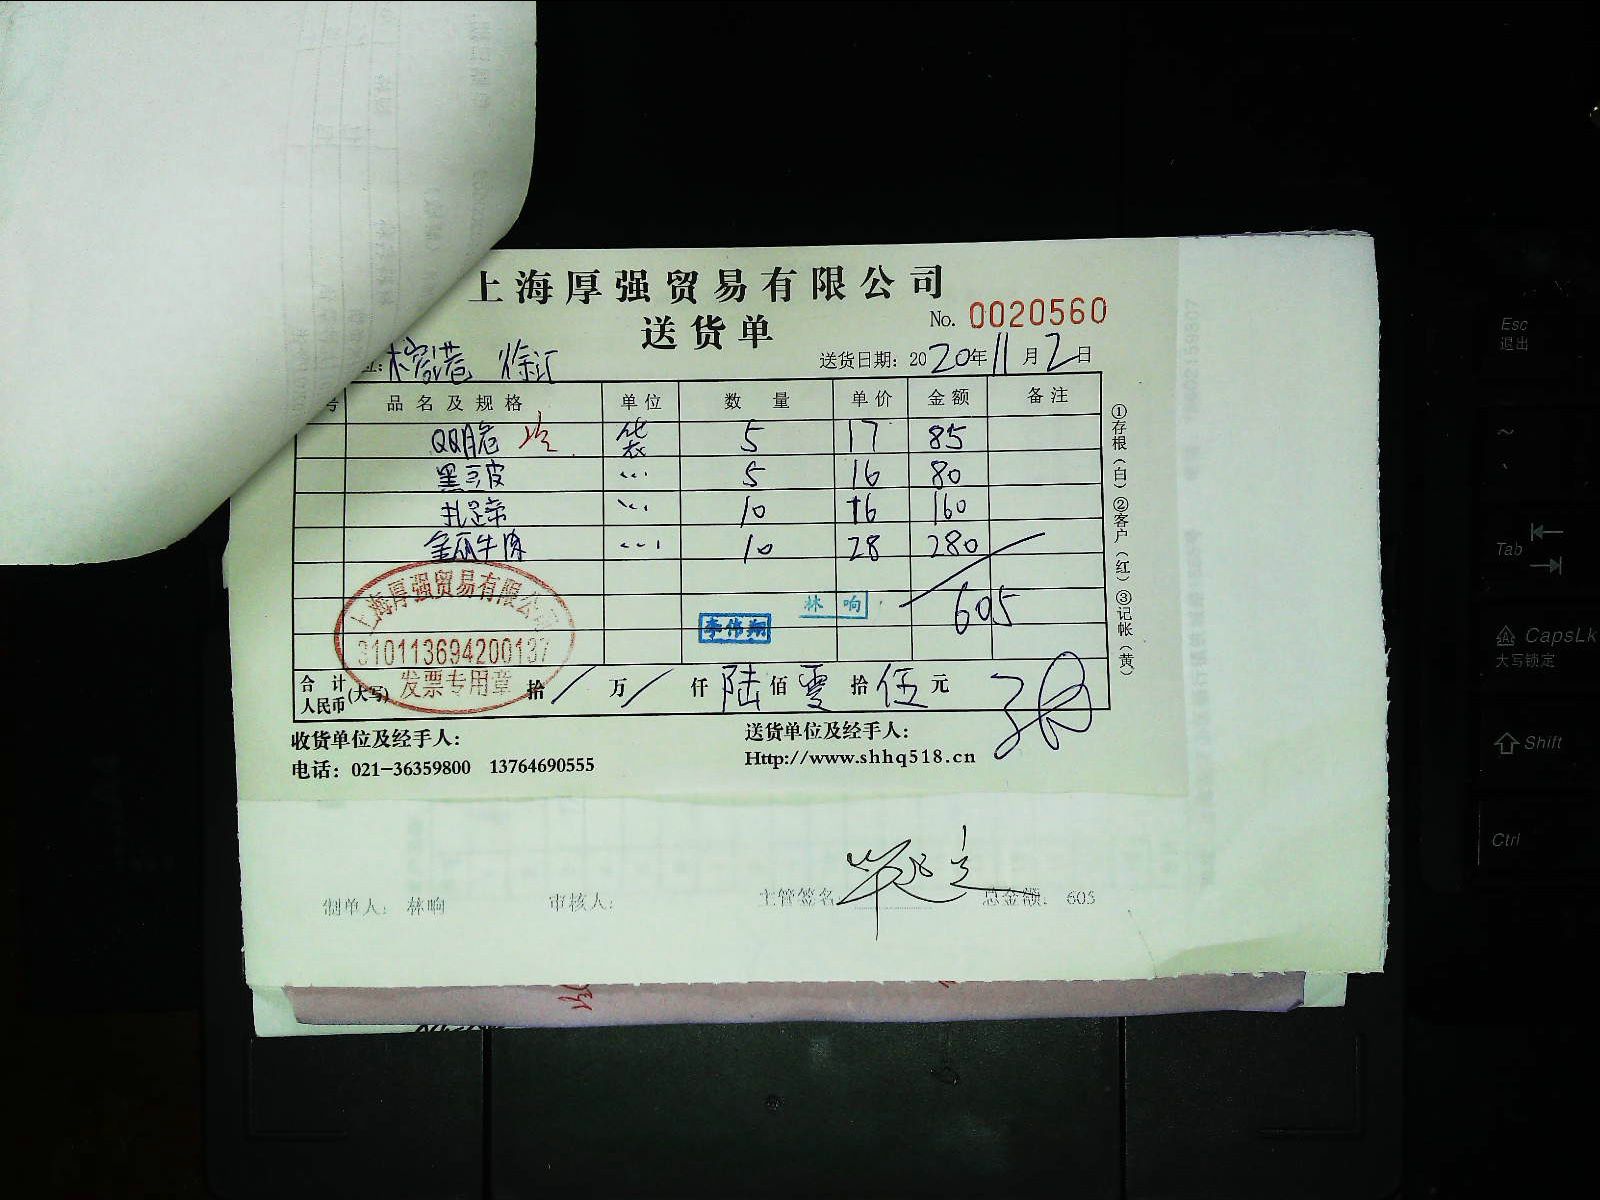 上海厚强贸易有限公司
送货单
No. 0020560
徐汇
送货日期: 2020年11月2日
号 品名及规格 单位 数量 单价 金额 备注
QQ脆 袋 5 17 85
黑三皮 〃 5 16 80
扎足蹄 〃 10 16 160
牛肉 〃 10 28 280
605
林响
李伟翔
上海厚强贸易有限公司
310113694200137
发票专用章
合计人民币(大写) 拾 / 万 / 仟 陆 佰 零 拾 伍 元
收货单位及经手人: 送货单位及经手人:
电话: 021-36359800 13764690555 Http://www.shhq518.cn
①存根(白)②客户(红)③记帐(黄)
制单人: 林响 审核人: 主管签名: 总金额: 605
Esc
退出
~
Tab
CapsLk
大写锁定
Shift
Ctrl